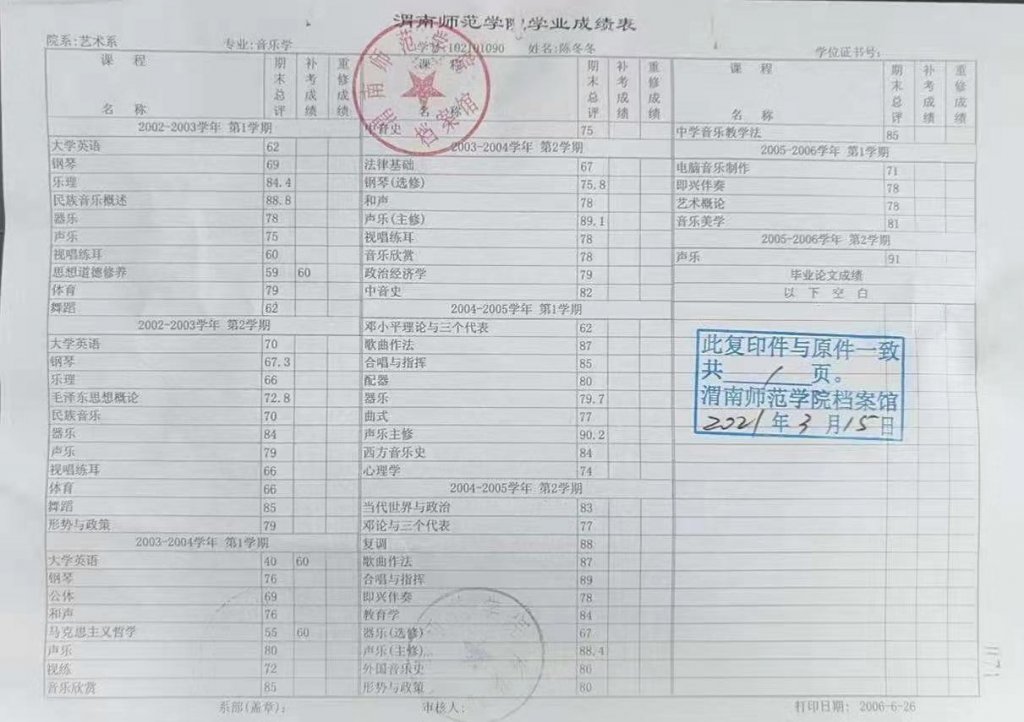 渭南师范学院学业成绩表
院系:艺术系 专业:音乐学 学号:102101090 姓名:陈冬冬 学位证书号:
课 程 名 称 期末总评 补考成绩 重修成绩
2002-2003学年 第1学期
大学英语 62
钢琴 69
乐理 84.4
民族音乐概述 88.8
器乐 78
声乐 75
视唱练耳 60
思想道德修养 59 60
体育 79
舞蹈 62
2002-2003学年 第2学期
大学英语 70
钢琴 67.3
乐理 66
毛泽东思想概论 72.8
民族音乐 70
器乐 84
声乐 79
视唱练耳 66
体育 66
舞蹈 85
形势与政策 79
2003-2004学年 第1学期
大学英语 40 60
钢琴 76
公体 69
和声 76
马克思主义哲学 55 60
声乐 80
视练 72
音乐欣赏 85
课 程 名 称 期末总评 补考成绩 重修成绩
中音史 75
2003-2004学年 第2学期
法律基础 67
钢琴(选修) 75.8
和声 78
声乐(主修) 89.1
视唱练耳 78
音乐欣赏 78
政治经济学 79
中音史 82
2004-2005学年 第1学期
邓小平理论与三个代表 62
歌曲作法 87
合唱与指挥 85
配器 80
器乐 79.7
曲式 77
声乐主修 90.2
西方音乐史 84
心理学 74
2004-2005学年 第2学期
当代世界与政治 83
邓论与三个代表 77
复调 88
歌曲作法 87
合唱与指挥 89
即兴伴奏 78
教育学 84
器乐(选修) 67
声乐(主修) 88.4
外国音乐史 86
形势与政策 80
课 程 名 称 期末总评 补考成绩 重修成绩
中学音乐教学法 85
2005-2006学年 第1学期
电脑音乐制作 71
即兴伴奏 78
艺术概论 78
音乐美学 81
2005-2006学年 第2学期
声乐 91
毕业论文成绩
以 下 空 白
此复印件与原件一致
共 1 页。
渭南师范学院档案馆
2021年3月15日
渭南师范学院
档案馆
系部(盖章): 审核人: 打印日期: 2006-6-26